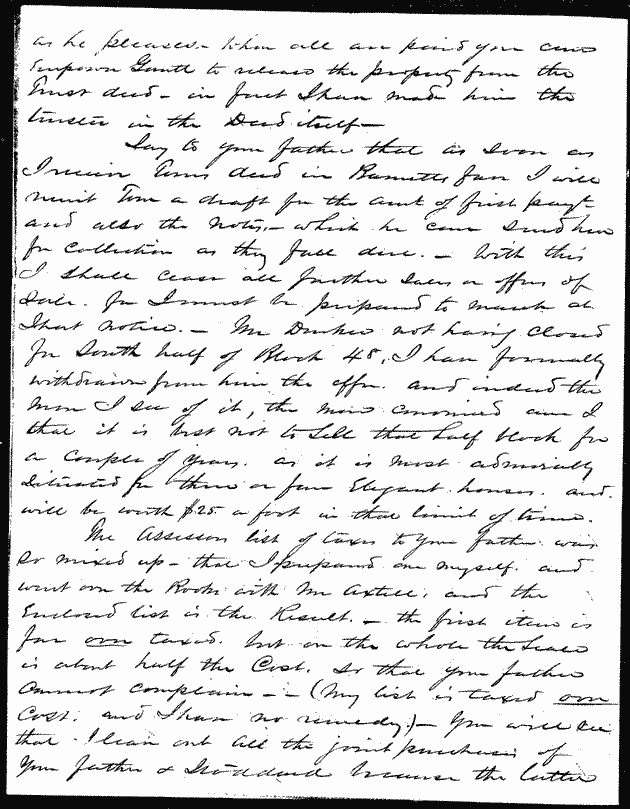 as he pleases. – When all are paid you can
Empower Gantt to release the property from the
Trust deed – in fact I have made him the
trustee in the Deed itself –
Say to your father that as soon as
I receive Toms deed in farm I will
remit Tom a draft for the amt of first payt
and also the notes, – which he can send here
for collection as they fall due. – With this
I shall cease all further Sales or offers of
Sale. for I must be prepared to march at
Short notice. – Mr not having closed
for South half of Block 48, I have formally
withdrawn from him the offer. and indeed the
more I see of it, the more convinced am I
that it is best not to Sell that half block for
a couple of years. as it is most admirably
Situated for three or four Elegant houses. and
will be worth $25 a foot in that limit of time.
The Assessors list of taxes to your father was
so mixed up – that I prepared one myself. and
went over the Books with Mr and the
Enclosed list is the Result. – the first item is
far over taxed. but on the whole the
is about half the Cost. so that your father
cannot complain – – (My list is taxed over
Cost. and I have no remedy.) – You will see
that I leave out all the joint purchases of
Your father & Stoddard because the latter